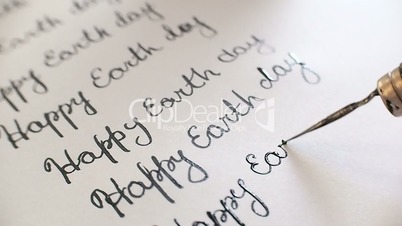 ppy Earth day
Happy Earth day
Happy Earth day
Happy Earth day
Happy Ea
ClipDealer